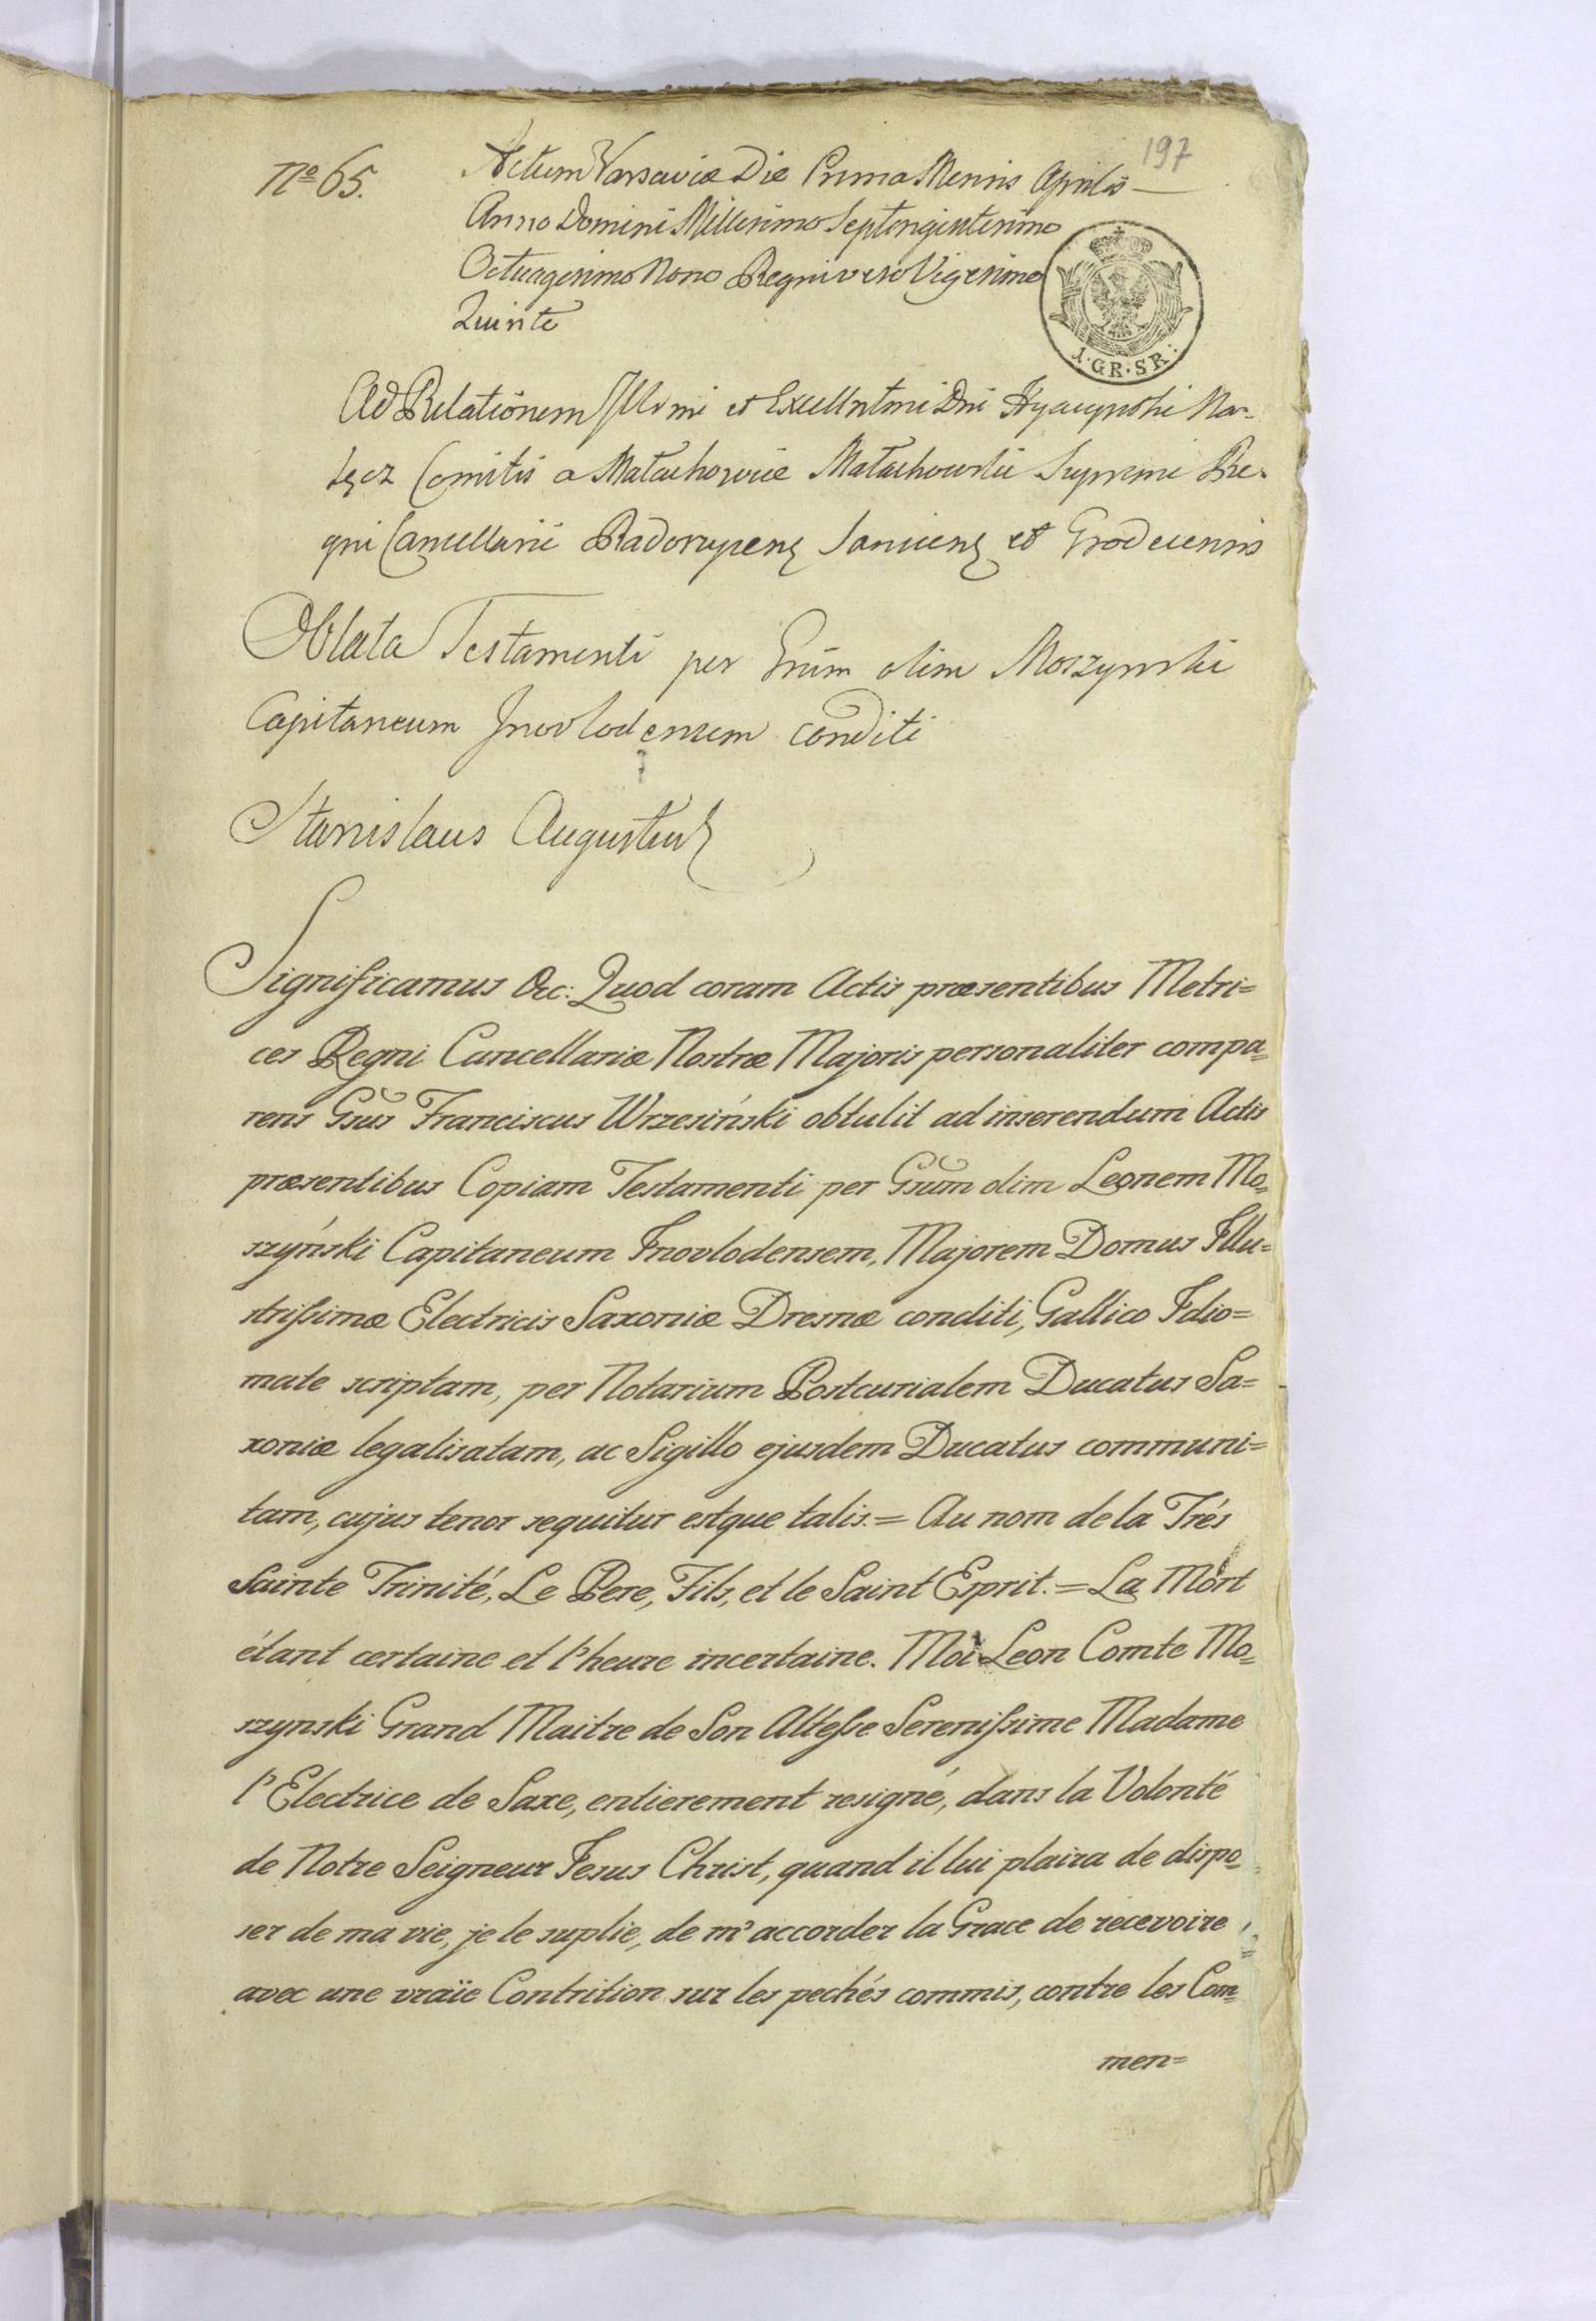 197
No 65.
Actum Varsaviæ Die Prima Mensis Aprilis
Anno Domini Millesimo Septengintesimo
Octuagesimo Nono Regni vero Vigesimo
Quinto
1·GR·SR:
Ad Relationem Illmi et Excellntmi Dni Hyacynthi Na-
łęcz Comitis a Małachowice Małachowski Supremi Re-
gni Cancellarii Radoszycen Sanicen et Grodecensis
Oblata Testamenti per Gsum olim Moszynski
Capitaneum Inovlodensem conditi
Stanislaus Augustus
Significamus &c: Quod coram Actis præsentibus Metri=
ces Regni Cancellariæ Nostræ Majoris personaliter compa=
rens Gsus Franciscus Wrzesiński obtulit ad inserendum Actis
præsentibus Copiam Testamenti per Gsum olim Leonem Mo=
szyński Capitaneum Inovlodensem, Majorem Domus Illu=
strissimæ Electricis Saxoniæ Dresnæ conditi, Gallico Idio=
mate scriptam, per Notarium Postcurialem Ducatus Sa=
xoniæ legalisatam, ac Sigillo ejusdem Ducatus communi=
tam, cujus tenor sequitur estque talis.= Au nom de la Trés
Sainte Trinité, Le Pere, Fils, et le Saint Esprit.= La Mort
étant certaine et l'heure incertaine. Moi Leon Comte Mo=
szynski Grand Maitre de Son Altesse Serenissime Madame
l'Electrice de Saxe, entierement resigné, dans la Volonté
de Notre Seigneur Jesus Christ, quand il lui plaira de dispo=
ser de ma vie, je le suplie, de m'accorder la Grace de recevoire
avec une vraïe Contrition sur les pechés commis, contre les Com=
men=